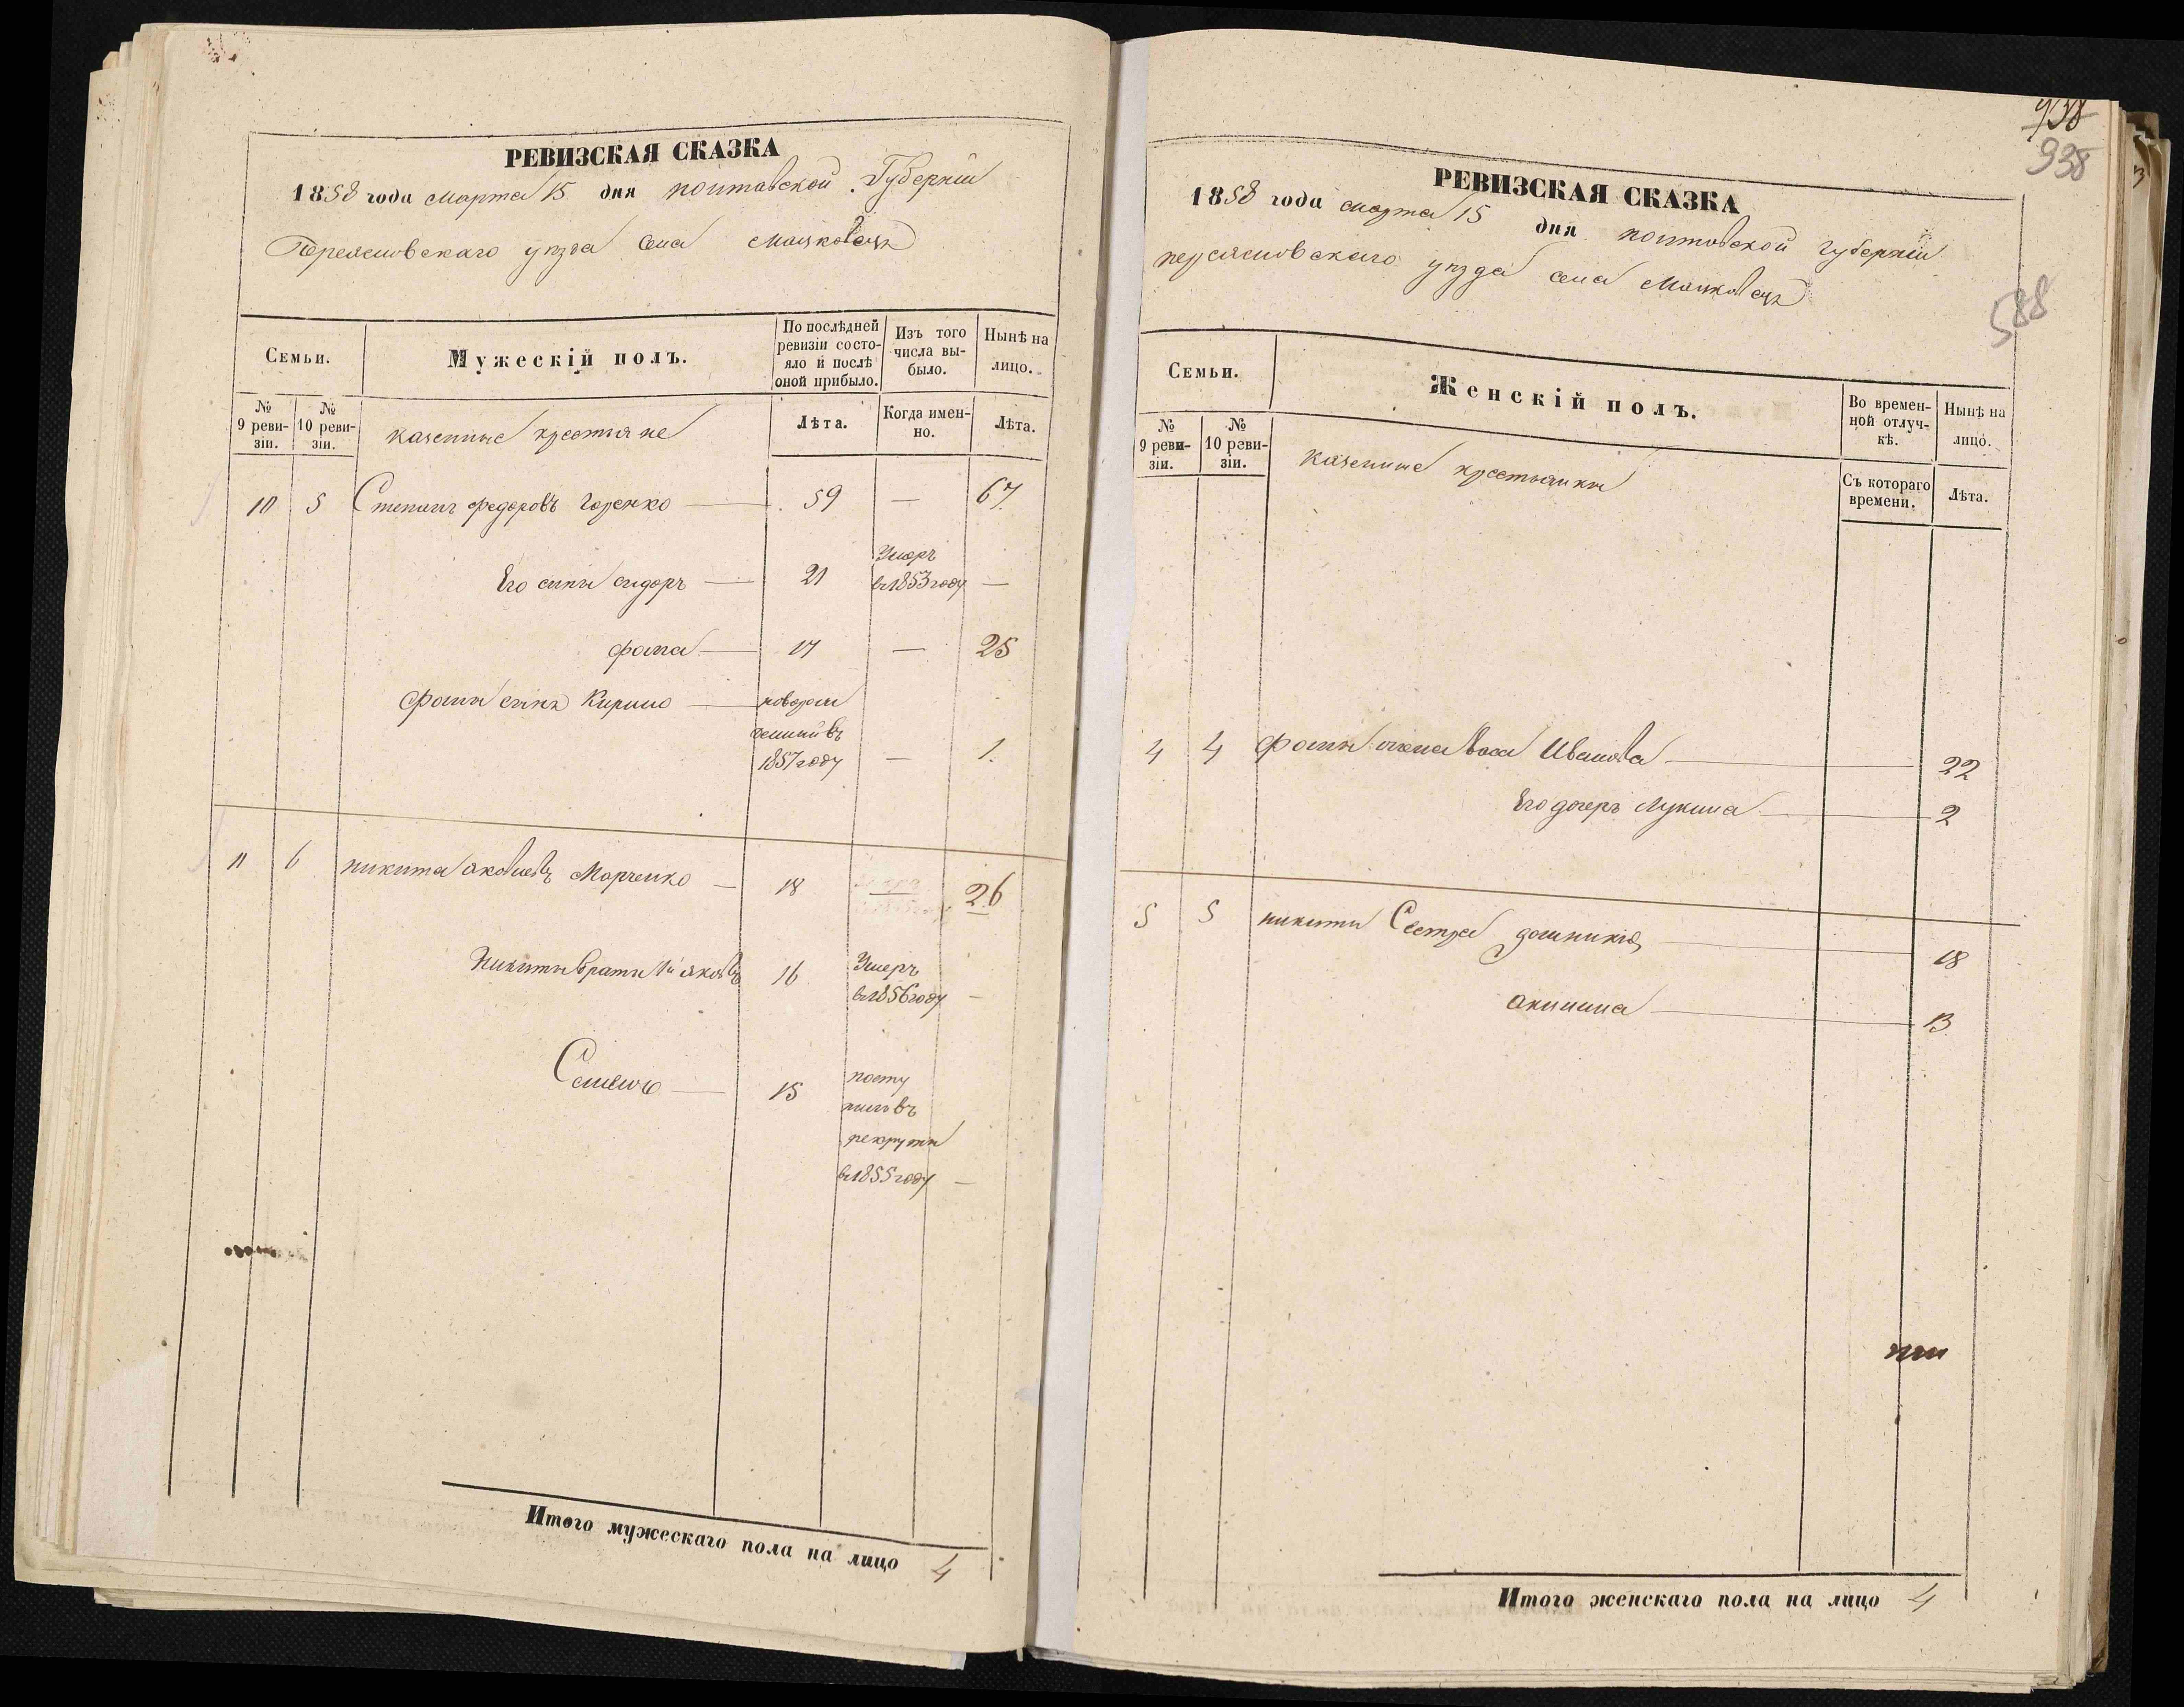 РЕВИЗСКАЯ СКАЗКА
1858 года марта 15 дня полтавской Губернии
Переяславского уѣзда села Мацковецъ
Семьи.
Мужескій полъ.
По послѣдней ревизіи состояло и послѣ оной прибыло.
Изъ того числа выбыло.
Нынѣ на лицо.
№ 9 ревизіи.
№ 10 ревизіи.
казенные крестьяне
Лѣта.
Когда именно.
Лѣта.
10 5 Степанъ федоровъ Горенко 59 — 67.
Его сыны сидоръ 21 Умеръ въ 1853 году —
фома 17 — 25
Фомы сынъ Кирило новорожденный въ 1857 году — 1.
11 6 никита яковлевъ Марченко 18 — 26
Никиты браты 1й яковъ 16 Умеръ въ 1856 году —
Семенъ 15 поступилъ въ рекруты въ 1855 году —
Итого мужескаго пола на лицо 4
938
938
588
РЕВИЗСКАЯ СКАЗКА
1858 года марта 15 дня полтавской губернии
переяславского уѣзда села Мацковецъ
Семьи.
Женскій полъ.
Во временной отлучкѣ.
Нынѣ на лицо.
№ 9 ревизіи.
№ 10 ревизіи.
казенные крестьянки
Съ котораго времени.
Лѣта.
4 4 Фомы жена Васа Иванова 22
Его дочерь Лукина 2
5 5 никиты Сестра домникія 18
акилина 13
Итого женскаго пола на лицо 4